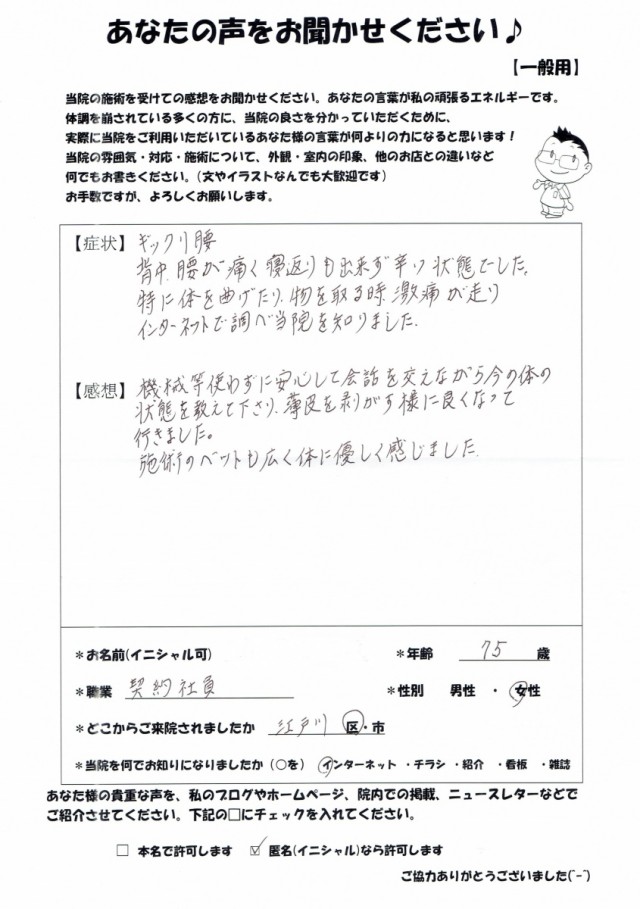 あなたの声をお聞かせください♪
【一般用】
当院の施術を受けての感想をお聞かせください。あなたの言葉が私の頑張るエネルギーです。
体調を崩されている多くの方に、当院の良さを分かっていただくために、
実際に当院をご利用いただいているあなた様の言葉が何よりの力になると思います！
当院の雰囲気・対応・施術について、外観・室内の印象、他のお店との違いなど
何でもお書きください。（文やイラストなんでも大歓迎です）
お手数ですが、よろしくお願いします。
【症状】ギックリ腰
背中、腰が痛く寝返りも出来ず辛い状態でした。
特に体を曲げたり、物を取る時、激痛が走り
インターネットで調べ当院を知りました。
【感想】機械等使わずに安心して会話を交えながら今の体の
状態を教えて下さり、薄皮を剥がす様に良くなって
行きました。
施術のベットも広く体に優しく感じました。
*お名前(イニシャル可) *年齢 75 歳
*職業 契約社員 *性別 男性 ・ 女性
*どこからご来院されましたか 江戸川 区・市
*当院を何でお知りになりましたか（○を） インターネット ・チラシ ・紹介 ・看板 ・雑誌
あなた様の貴重な声を、私のブログやホームページ、院内での掲載、ニュースレターなどで
ご紹介させてください。下記の□にチェックを入れてください。
□ 本名で許可します ☑ 匿名(イニシャル)なら許可します
ご協力ありがとうございました(^-^)